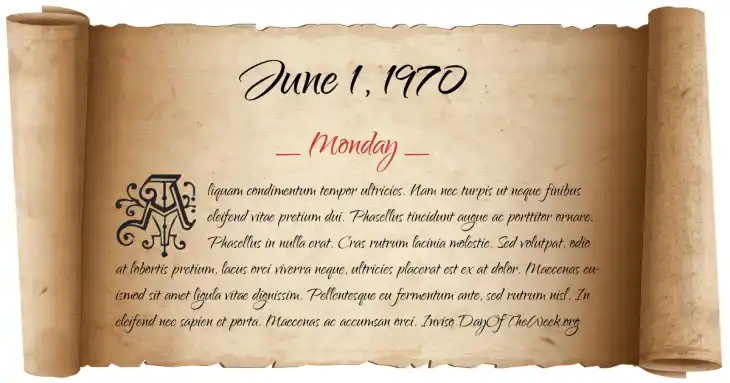 June 1, 1970
_ Monday _
Aliquam condimentum tempor ultricies. Nam nec turpis ut neque finibus
eleifend vitae pretium dui. Phasellus tincidunt augue ac porttitor ornare.
Phasellus in nulla erat. Cras rutrum lacinia molestie. Sed volutpat, odio
at lobortis pretium, lacus orci viverra neque, ultricies placerat est ex at dolor. Maecenas eu-
ismod sit amet ligula vitae dignissim. Pellentesque eu fermentum ante, sed rutrum nisl. In
eleifend nec sapien et porta. Maecenas ac accumsan orci. Inviso DayOfTheWeek.org